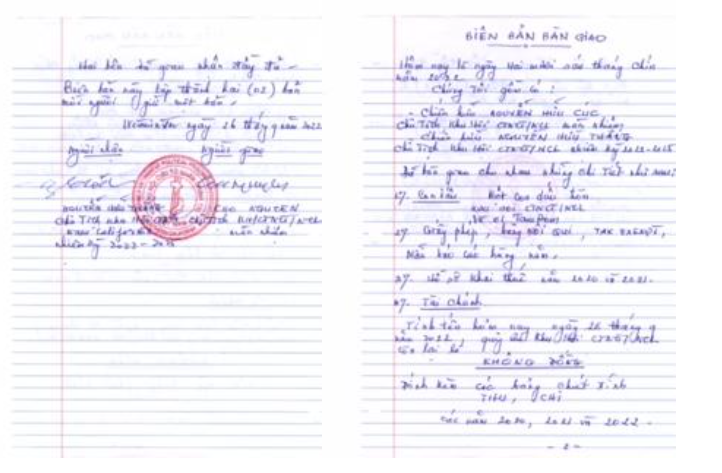 BIÊN BẢN BÀN GIAO
Hôm nay là ngày Hai mươi sáu tháng Chín
năm 2022.
Chúng tôi gồm có:
- Chiến hữu NGUYỄN HỮU CÚC
Chủ Tịch Khu Hội CTNCT/NCL mãn nhiệm
- Chiến hữu NGUYỄN HỮU
Chủ Tịch Khu Hội CTNCT/NCL nhiệm kỳ 2022-2025
Để bàn giao cho nhau những chi tiết như sau:
1/. Con dấu Một con dấu tròn
KHU HỘI CTNCT/NCL
2/. Giấy phép, NỘI QUI, TAX EXEMPT,
các hàng năm.
3/. Hồ sơ khai thuế năm 2020 và 2021.
4/. Tài chánh
Tính đến hôm nay ngày 26 tháng 9
năm 2022, quỹ của Khu Hội CTNCT/NCL
còn lại là
KHÔNG ĐỒNG
Đính kèm các bảng
THU, CHI
các năm 2020, 2021 và 2022.
- 1 -
Hai bên đã giao nhận đầy đủ.
Biên bản này lập thành hai (02) bản
mỗi người giữ một bản.
Westminster ngày 26 tháng 9 năm 2022
Người nhận Người giao
NGUYỄN HỮU CUC NGUYEN
Chủ Tịch Khu Hội Chủ Tịch KH/CTNCT/NCL
Nam California mãn nhiệm
nhiệm kỳ 2022-2025